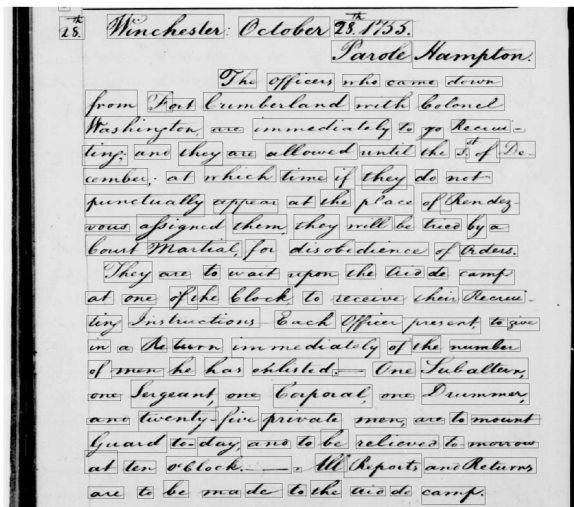 28.th Winchester: October 28.th 1755.
Parole Hampton.
The officers who came down
from Fort Cumberland with Colonel
Washington, are immediately to go Recrui-
ting; and they are allowed until the 1.st of De-
cember; at which time if they do not
punctually appear at the place of Rendez-
vous assigned them, they will be tried by a
Court Martial, for disobedience of Orders.
They are to wait upon the Aid de camp
at one of the Clock, to receive their Recrui-
ting Instructions — Each Officer present, to give
in a Return immediately of the number
of men he has enlisted. — One Subaltern,
one Sergeant, one Corporal, one Drummer,
and twenty-five private men, are to mount
Guard to-day, and to be relieved to-morrow
at ten o'Clock. — All Reports and Returns
are to be made to the Aid de camp.